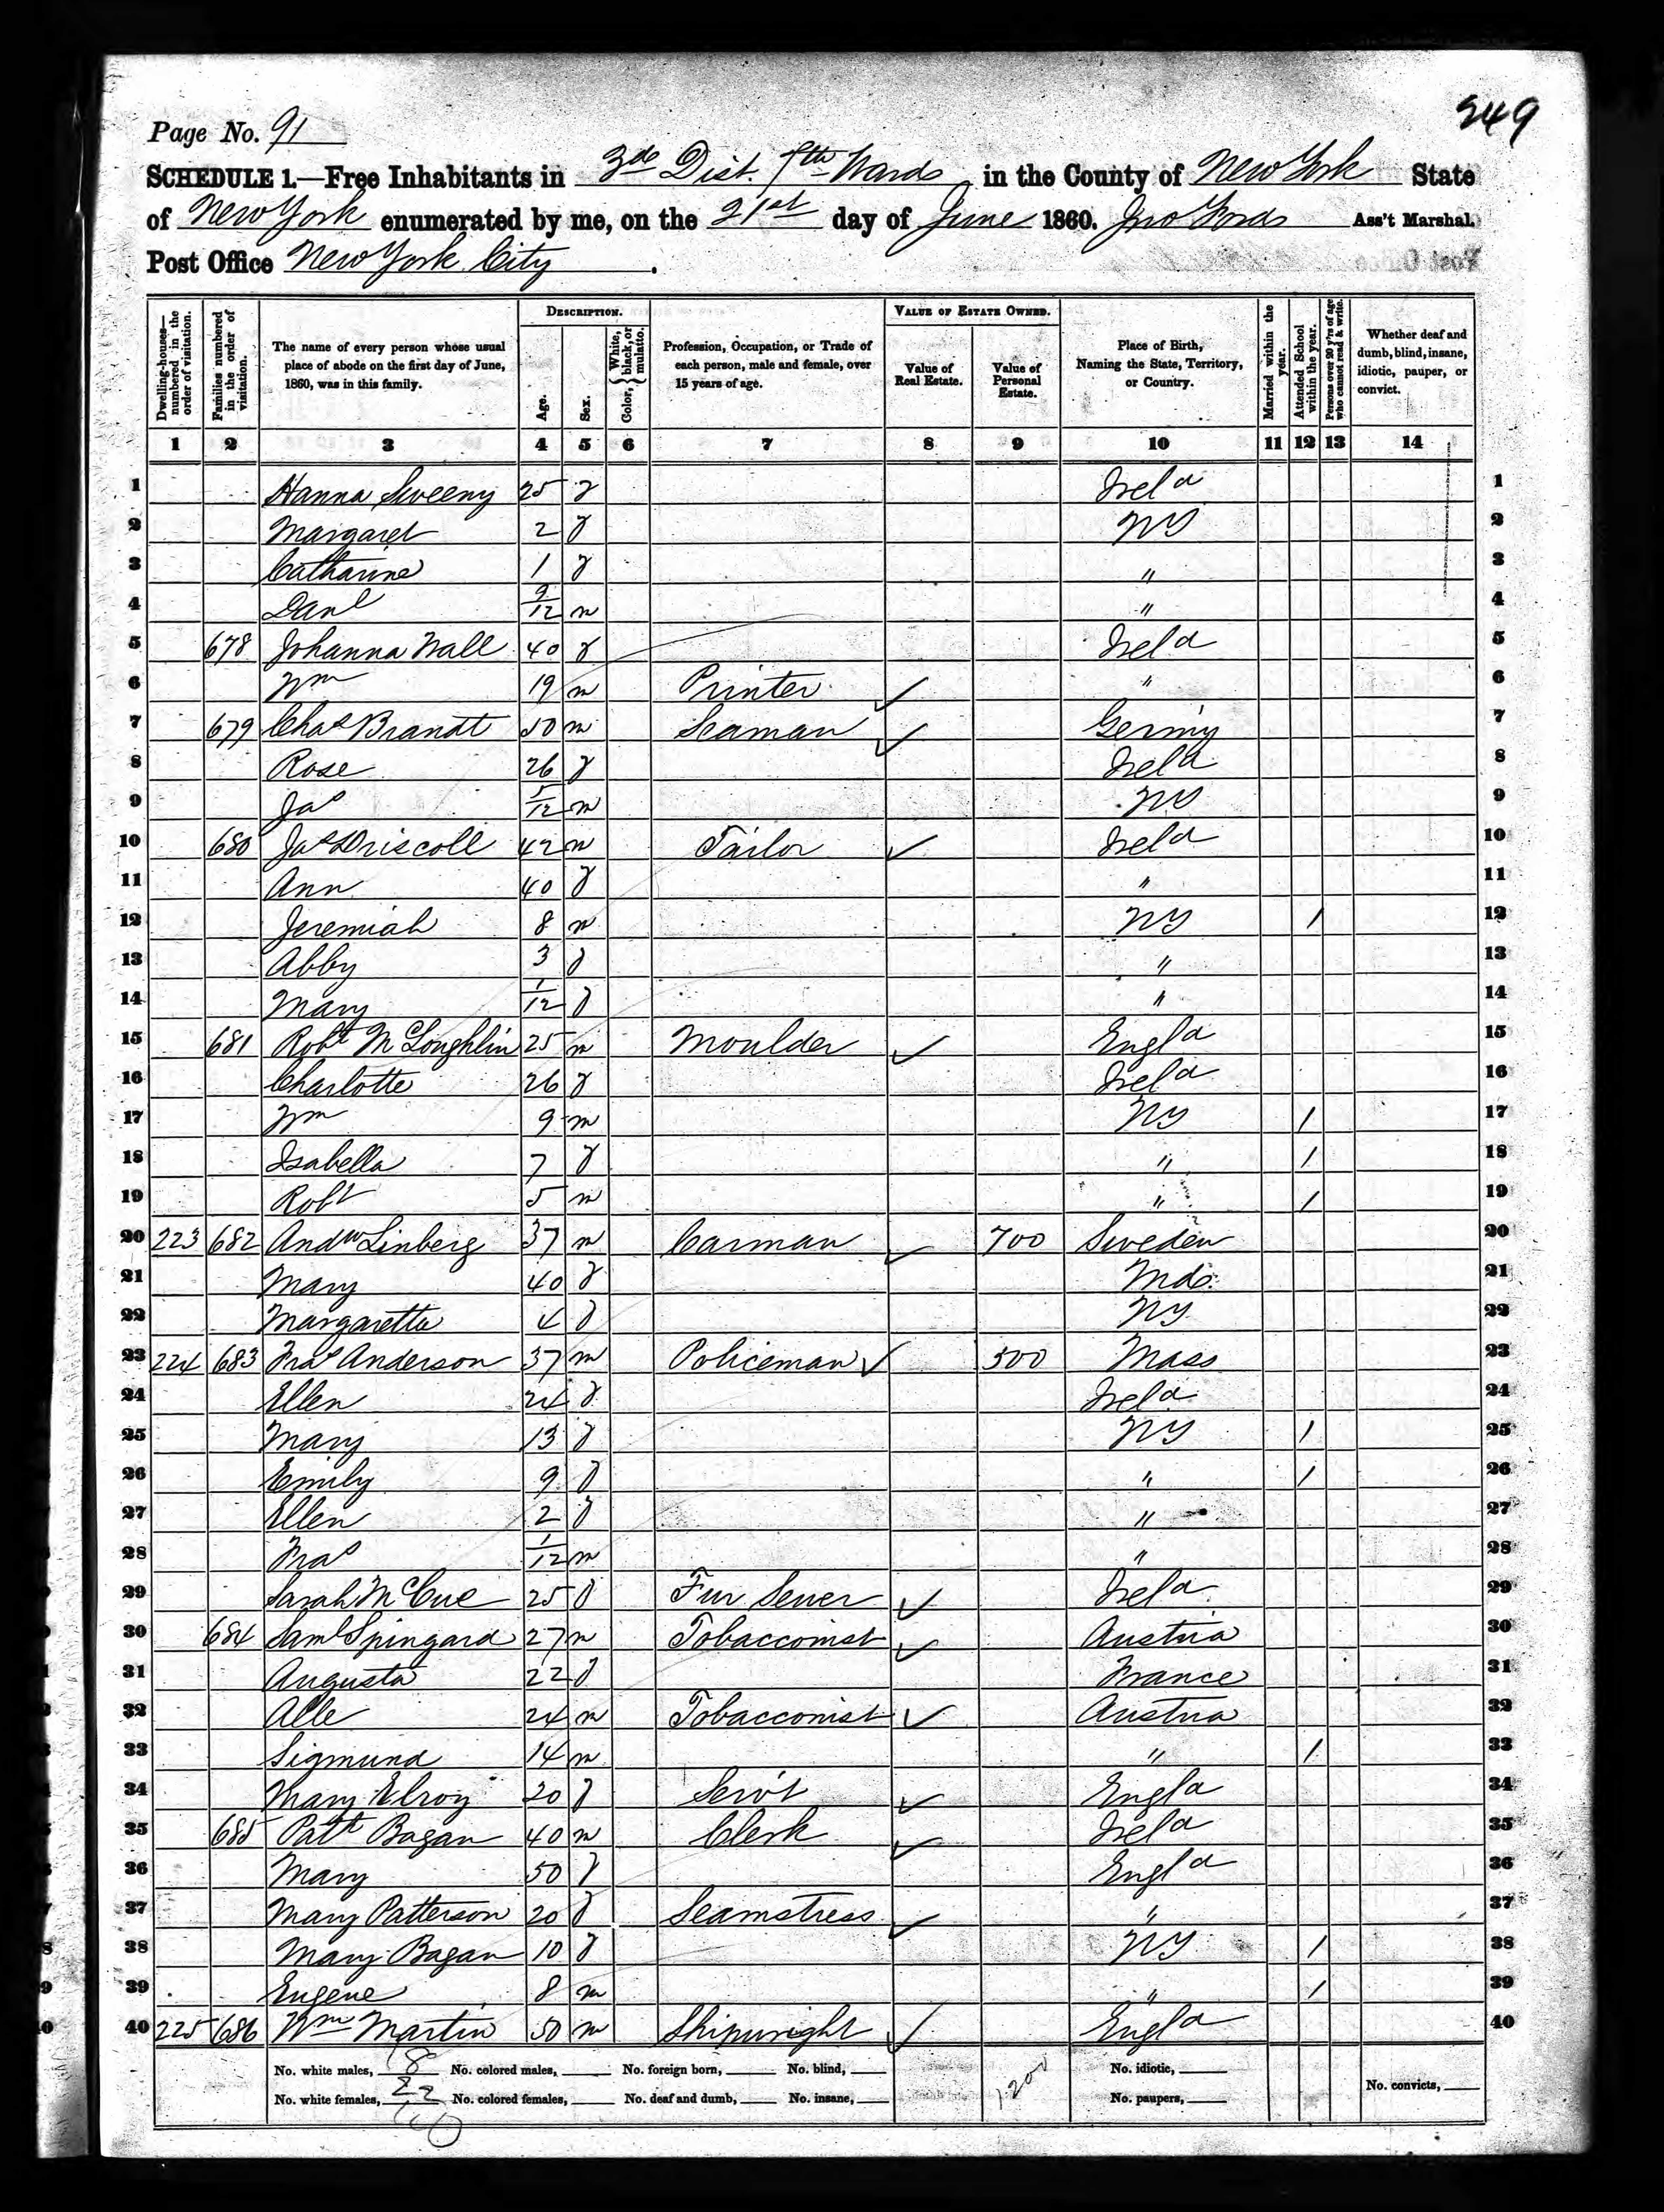 249
Page No. 91
SCHEDULE 1.—Free Inhabitants in 3d Dist. 7th Ward in the County of New York State
of New York enumerated by me, on the 21st day of June 1860. Jno Ass't Marshal.
Post Office New York City.
Dwelling-houses—numbered in the order of visitation. Families numbered in the order of visitation. The name of every person whose usual place of abode on the first day of June, 1860, was in this family. DESCRIPTION. Age. Sex. Color, { White, black, or mulatto. Profession, Occupation, or Trade of each person, male and female, over 15 years of age. VALUE OF ESTATE OWNED. Value of Real Estate. Value of Personal Estate. Place of Birth, Naming the State, Territory, or Country. Married within the year. Attended School within the year. Persons over 20 y'rs of age who cannot read & write. Whether deaf and dumb, blind, insane, idiotic, pauper, or convict.
1 2 3 4 5 6 7 8 9 10 11 12 13 14
1 Hanna Sweeny 25 f Irela 1
2 Margaret 2 f NY 2
3 Catharine 1 f " 3
4 Danl 9/12 m " 4
5 678 Johanna Wall 40 f Irela 5
6 Wm 19 m Printer ✓ " 6
7 679 Chas Brandt 50 m Seaman ✓ Germny 7
8 Rose 26 f Irela 8
9 Jas 5/12 m NY 9
10 680 Jas Driscoll 42 m Tailor ✓ Irela 10
11 Ann 40 f " 11
12 Jeremiah 8 m NY / 12
13 Abby 3 f " 13
14 Mary 1/12 f " 14
15 681 Robt McLoughlin 25 m Moulder ✓ Engla 15
16 Charlotte 26 f Irela 16
17 Wm 9 m NY / 17
18 Isabella 7 f " / 18
19 Robt 5 m " / 19
20 223 682 Andw Linberg 37 m Carman ✓ 700 Sweden 20
21 Mary 40 f Md. 21
22 Margaretta 4 f NY 22
23 224 683 Fras Anderson 37 m Policeman ✓ 500 Mass 23
24 Ellen 24 f Irela 24
25 Mary 13 f NY / 25
26 Emily 9 f " / 26
27 Ellen 2 f " 27
28 Fras 1/12 m " 28
29 Sarah McCue 25 f Fur Sewer ✓ Irela 29
30 684 Saml Spingard 27 m Tobacconist ✓ Austria 30
31 Augusta 22 f France 31
32 Alle 24 m Tobacconist ✓ Austria 32
33 Sigmund 14 m " / 33
34 Mary Elroy 20 f Serv't ✓ Engla 34
35 685 Patk Bagan 40 m Clerk ✓ Irela 35
36 Mary 50 f Engla 36
37 Mary Patterson 20 f Seamstress ✓ " 37
38 Mary Bagan 10 f NY / 38
39 Eugene 8 m " / 39
40 225 686 Wm Martin 50 m Shipwright ✓ Engla 40
No. white males, 18 No. colored males, No. foreign born, No. blind, 1200 No. idiotic,
No. white females, 22 No. colored females, No. deaf and dumb, No. insane, No. paupers, No. convicts,
40